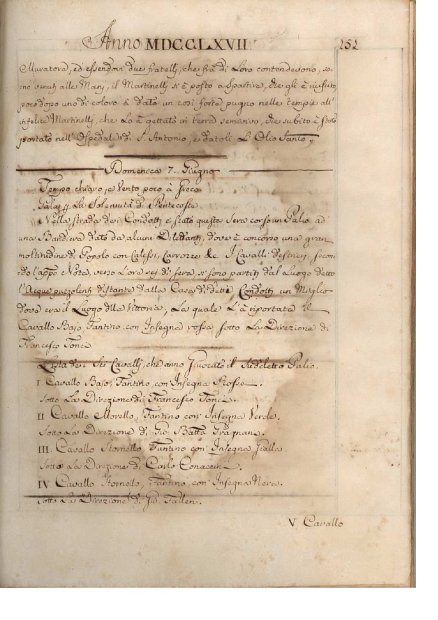 Anno MDCCLXVII
252
Muratora, ed essendovi due fratelli, che frà di Loro contendevono, se
no venuti alle Mani, il Martinelli si è posto a Spartire, che gli è riuscito
poco dopo uno di coloro à dato un così forte pugno nelle tempie all'
infelice Martinelli, che Lo à gettato in terra semivivo, che subito è stato
portato nell' Ospedal di S. Antonio, e datoli L'Olio Santo
Domenica 7. Giugno
Tempo chiaro, e Vento poco à Greco
La Solennità di Pentecoste
Nella strada dei Condotti, è stato questa Sera corso un Palio ad
una Bandiera dato da alcuni Dilettanti, dove è concorso una gran
moltitudine di Popolo con Calessi, Carrozze &c. I Cavalli descritti, secon
do l'appo Nota, verso Lore di Sera, si sono partiti dal Luogo detto
l'Acque distante dalla Casa di detti Condotti un Miglio
dove era il Luogo della Vittoria, La quale L'à riportata il
Cavallo Bajo, Fantino con Insegna rossa sotto La Direzione di
Francesco Tonci
Lista dei Cavalli, che anno il Sudetto Palio.
I Cavallo Bajo, Fantino, con Insegna Rossa.
Sotto La Direzione di Francesco Tonci.
II Cavallo Morello, Fantino con Insegna Verde.
Sotto La Direzione di Gio. Batta
III. Cavallo Stornello, Fantino con Insegna Gialla
Sotto La Direzione di Carlo
IV Cavallo Stornelo, Fantino, con Insegna Nera.
Sotto La Direzione di Gio.
V. Cavallo